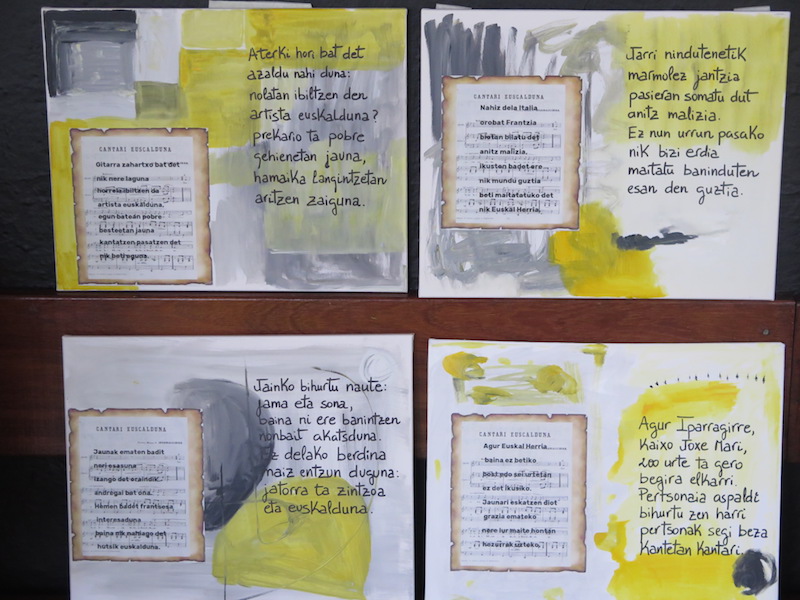 CANTARI EUSCALDUNA
Gitarra zahartxo bat det
nik nere laguna
horrela ibiltzen da
artista euskalduna,
egun batean pobre
besteetan jauna
kantatzen pasatzen det
nik beti eguna.
Aterki hori bat det
azaldu nahi duna:
nolatan ibiltzen den
artista euskalduna?
prekario ta pobre
gehienetan jauna,
hamaika langintzetan
aritzen zaiguna.
CANTARI EUSCALDUNA
Nahiz dela Italia
orobat Frantzia
bietan bilatu det
anitz malizia.
ikusten badet ere
nik mundu guztia
beti maitatuko det
nik Euskal Herria.
Jarri nindutenetik
marmolez jantzia
pasieran somatu dut
anitz malizia.
Ez nun urrun pasako
nik bizi erdia
maitatu baninduten
esan den guztia.
CANTARI EUSCALDUNA
Jaunak ematen badit
neri osasuna
izango det oraindik
andregai bat ona.
Hemen badet frantsesa
interesaduna
baina nik nahiago det
hutsik euskalduna.
Jainko bihurtu naute:
fama eta sona,
baina ni ere banintzen
nonbait akatsduna.
Ez delako berdina
maiz entzun duguna:
jatorra ta zintzoa
eta euskalduna.
CANTARI EUSCALDUNA
Agur Euskal Herria
baina ez betiko
bost edo sei urtetan
ez det ikusiko.
Jaunari eskatzen diot
grazia emateko
nere lur maite hontan
hezurrak uzteko.
Agur Iparragirre,
Kaixo Joxe Mari,
200 urte ta gero
begira elkarri.
Pertsonaia aspaldi
bihurtu zen harri
pertsonak segi beza
Kantetan Kantari.